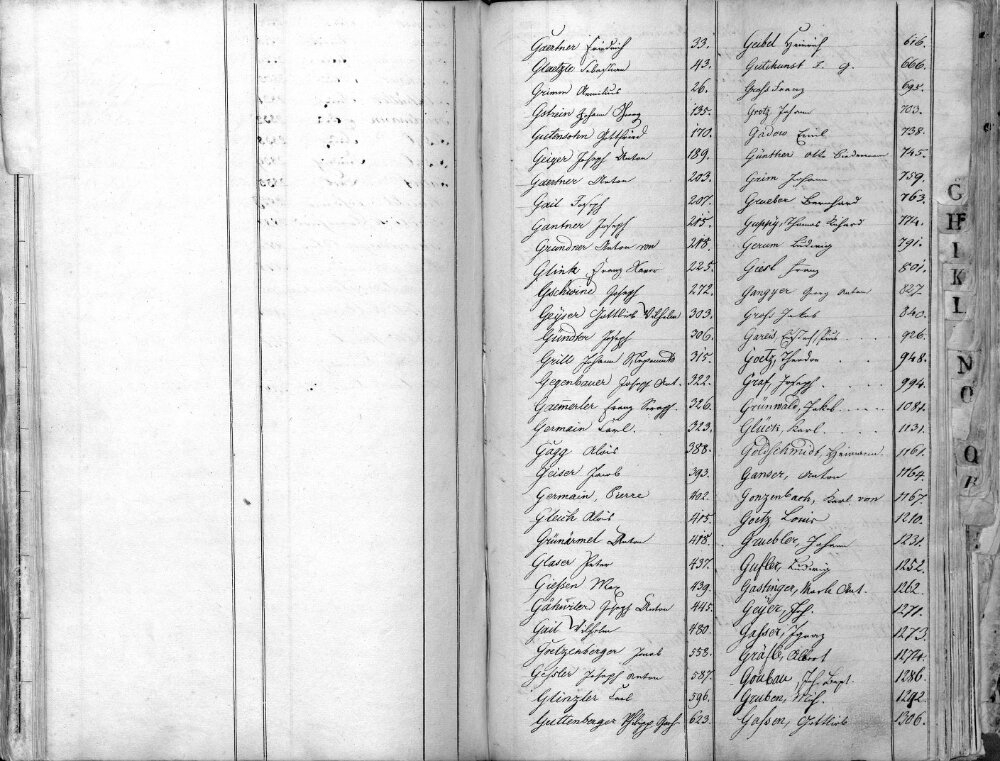 Gaertner Friedrich 33.
Glaetzle Sebastian 43.
Grimm 26.
Gstrein Johann Georg 135.
Gutensohn Gottfried 170.
Geiger Joseph Anton 189.
Gaertner Anton 203.
Gail Joseph 207.
Gantner Joseph 215.
Grundner Anton von 218.
Glink Franz Xaver 225.
Gschwind Joseph 272.
Geyser Gottlieb Wilhelm 303.
Joseph 306.
Grill Johann Nepomuk 315.
Gegenbauer Joseph Ant. 322.
Gaemerler Franz Seraph. 326.
Germain Carl. 323.
Gagg Alois 388.
Geiser Jacob 393.
Germain, Pierre 402.
Gleich Alois 415.
Grünärmel Anton 418.
Glaser Peter 437.
Gießen Max 439.
Gähwiler Joseph Anton 445.
Gail Wilhelm 480.
Goetzenberger Jacob 558.
Geßler Joseph Anton 587.
Glinzler Carl 596.
Guttenberger Philipp 623.
Geibel Heinrich 616.
Gutekunst 666.
Groß Franz 695.
Goetz Johann 703.
Gädow Emil 738.
Günther Otto 745.
Grim Johann 759.
Grueber Bernhard 763.
Guppy, Thomas Richard 774.
Gerum Ludwig 791.
Giesl Franz 801.
Gangyer Georg Anton 827.
Groß Jakob 840.
Gareis 926.
Goetz, Theodor 948.
Graf, Joseph 994.
Grünwald, Jakob 1081.
Glück, Karl 1131.
Goldschmidt, Hermann 1161.
Ganser, Anton 1164.
Gonzenbach, Karl von 1167.
Goetz Louis 1210.
Gruebler, Johann 1231.
Gufler, Ludwig 1252.
Gastinger, Mark Ant. 1262.
Geyer, Joh. 1271.
Gasser, Ignaz 1273.
Gräfle, Albert 1274.
Goubau, Joh. Bapt. 1286.
Gruben, Mich. 1292.
Gassen, Gottlieb 1306.
G
H
I
K
L
N
O
Q